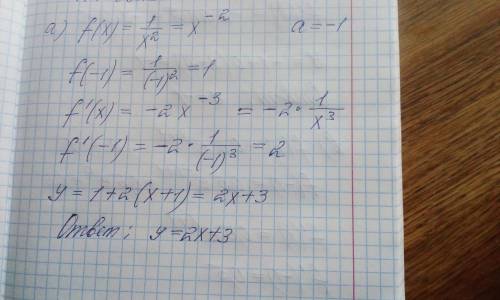 а) f(x) = 1/x² = x⁻² a = -1
f(-1) = 1/(-1)² = 1
f'(x) = -2x⁻³ = -2 · 1/x³
f'(-1) = -2 · 1/(-1)³ = 2
y = 1+2(x+1) = 2x+3
Ответ: y = 2x+3